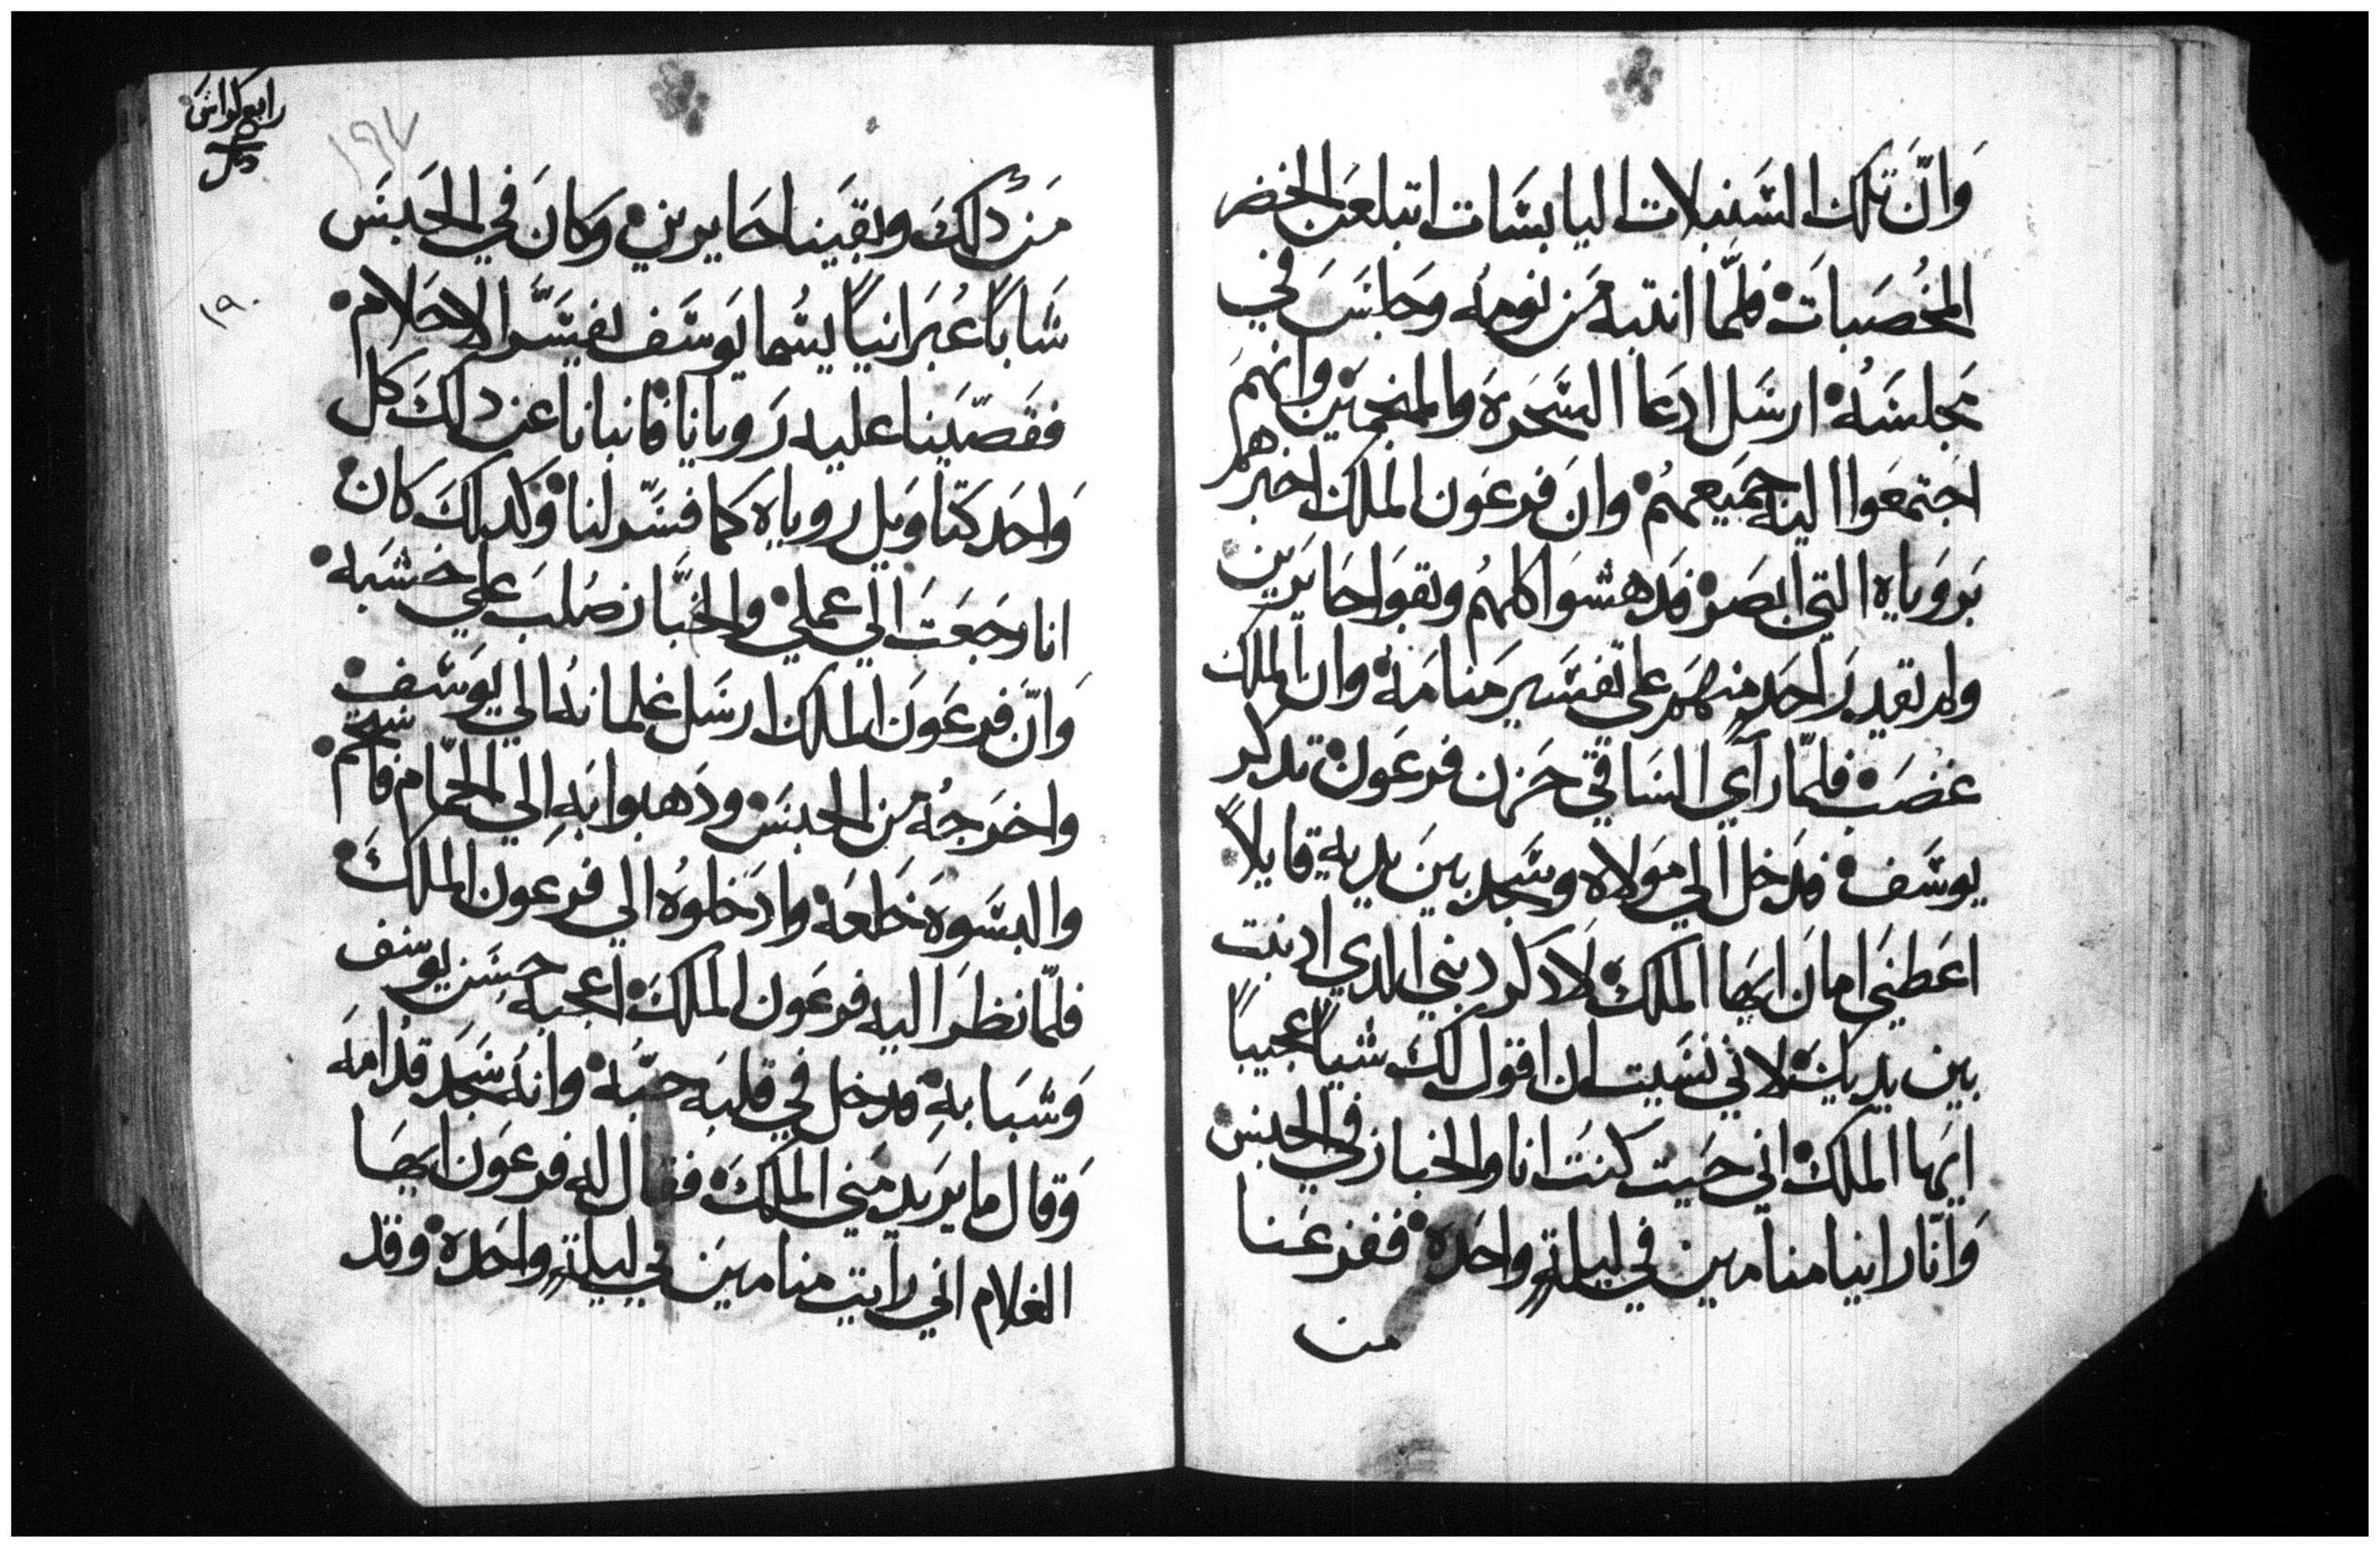 وَانّ تلك السَنبلات اليابسَات ابتلعن الخضر
المخُصَبات فلمّا انتبه مَن نومه وجَلسَ في
مَجلسَهُ ارسَل ادعا السَحَره والمنجمَين وانهمَ
اجتمعَوا اليه جمَيعهمُ وانَ فرعَون الملك اخبرهم
بَروَياه التي ابصَر فدهشوَا كلهمُ وبقوَا حَايرَين
ولم يقدر احَد منهمَ علي تفسَير منامَه وان الملك
غضبَ فلمّا رآي السَاقي حَزن فرعَون تدكر
يوسَف فدخل الي مَولاه وسَجد بينَ يديه قايلاً
اعَطنيَ امانَ ايهَا الملك لادَكر دنبي الدي ادنبت
بين يديك لاني نسَيت ان اقول لك شياً عجيباً
ايهَا الملك اني حَيت كنتَ انا والخباز في الحبسَ
وَانّا راينا منامين في ليلةٍ واحَدَه ففزعَنا
من
رابع كراس
١٩٧
١٩٠
مَن دلك وبقَينا حَايرين وَكانَ في الحَبسَ
شَاباً عُبَرانياً يسُما يَوسَف يفسَّر الاحَلام
فقَصّينا عليه رَويانا فانبانا عن دلكَ كل
وَاحَد كتاوَيل روياه كما فسَّر لنا وَكدلكَ كان
انا رجَعَت الي عملي والخبَّاز صُلبَ علي خشَبه
وَانّ فرعَونَ الملك ارسَل غلمانهُ الي يَوسَف
واخرَجهُ من الحبسَ ودَهبوا بَهِ الي الحمّام فاسَتحم
والبسَوهَ خَلعَه وادَخلوهُ الي فرعَون الملكَ
فلمّا نظرَ اليه فرعَون الملكَ اعجبه حسَن يوسف
وَشبَابهِ فدخل في قلبَه حبَّه وانه سَجَد قدُامَه
وَقال ما يرَيد مَني الملكَ فقال له فرعَون ايهَا
الغلام اني رايت منامين في ليلةٍ واحَده وقد